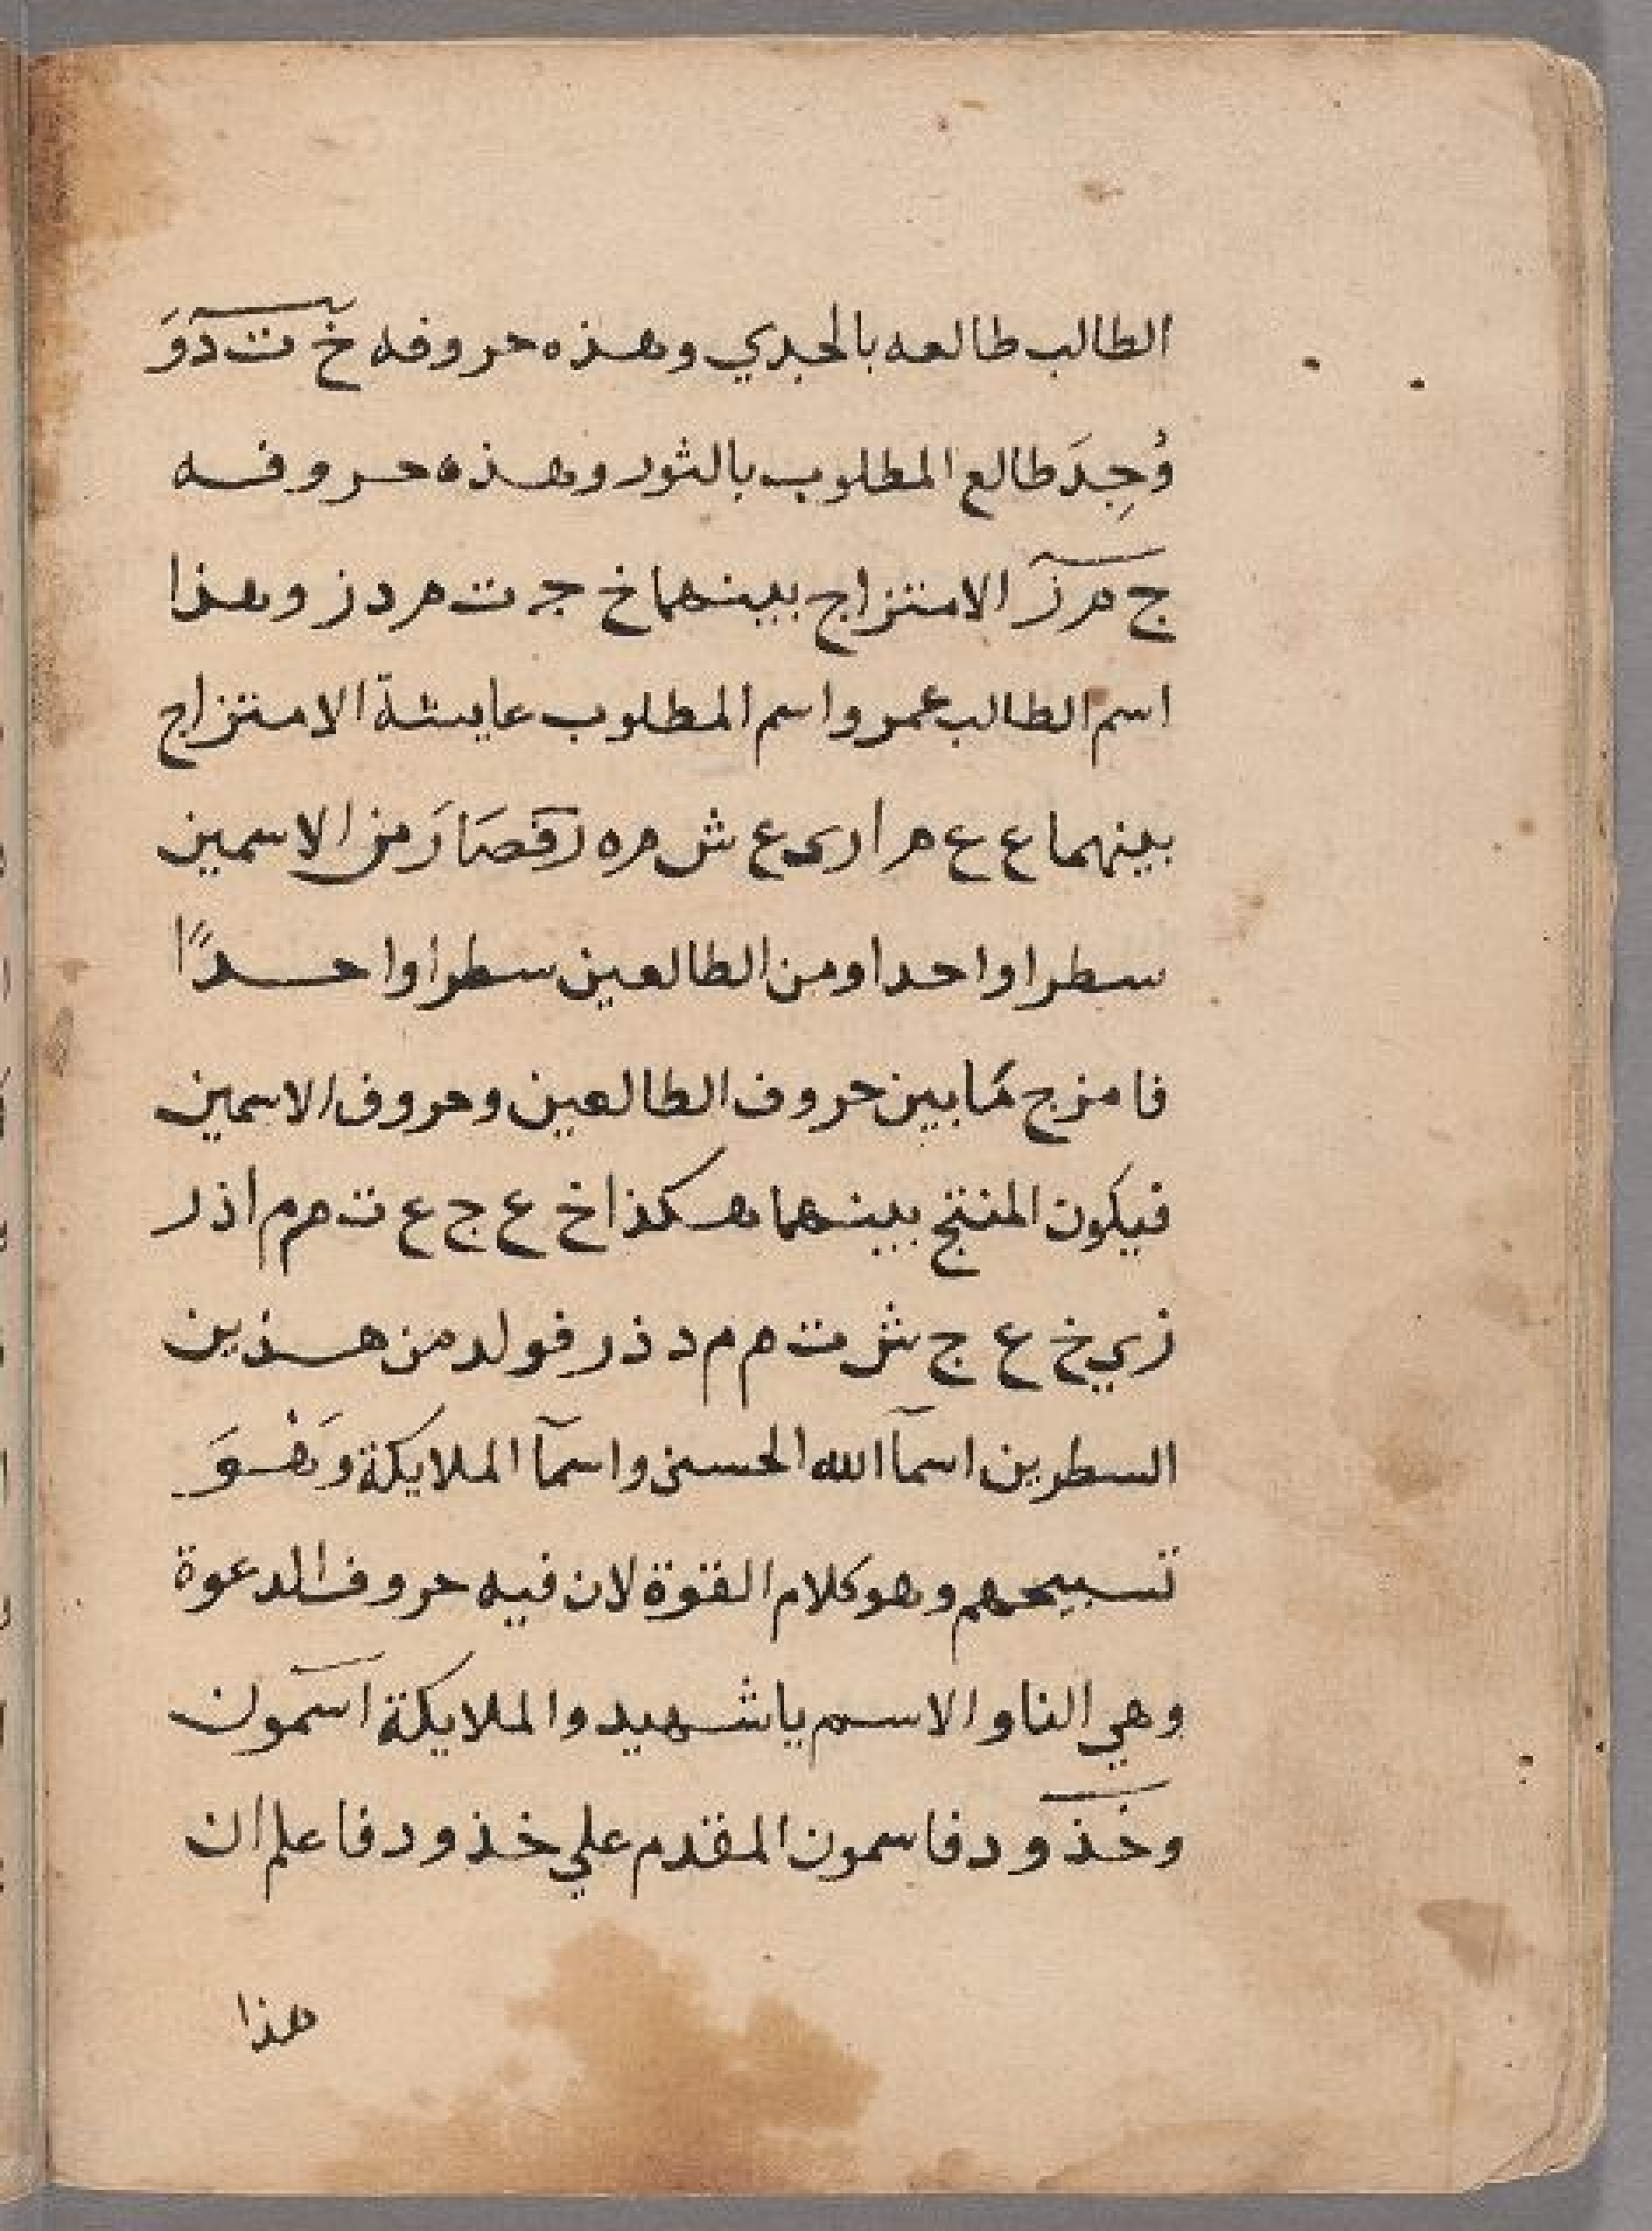 الطالب طالعه بالجدي وهذه حروفه خ ت د وَ
وُجِدَ طالع المطلوب بالثور وهذه حروفه
ج م ر ز الامتزاج بينهما خ ج ت م د ز وهذا
اسم الطالب عمر واسم المطلوب عايشة الامتزاج
بينهما ع ع م ا ر ى ع ش م ه ر فصَارَ من الاسمين
سطرا واحدا ومن الطالعين سطرا واحدًا
فامزج كما بين حروف الطالعين وحروف الاسمين
فيكون المنتج بينهما هكذا خ ع ج ع ت م م ا ذ ر
ز ي خ ع ج ش ت م م د ذ ر فولد من هذين
السطرين اسمآ الله الحسنى واسمآ الملايكة وَهْوَ
تسبيحهم وهو كلام القوة لان فيه حروف الدعوة
وهي النا و الاسم يا شهيد والملايكة اسمون
وخذود فاسمون المقدم علي خذود فاعلم ان
هذا